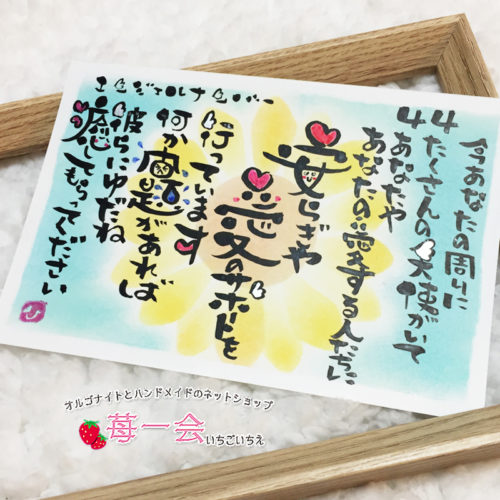 エンジェルナンバー
44
今あなたの周りに
たくさんの天使がいて
あなたや
あなたの愛する人たちに
安らぎや
愛のサポートを
行っています
何か問題があれば
彼らにゆだね
癒してもらってください
オルゴナイトとハンドメイドのネットショップ
苺一会
いちごいちえ